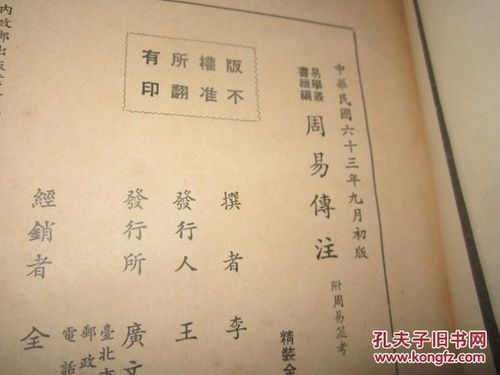 中華民國六十三年九月初版
易學叢書續編
周易傳注 附周易筮考
精裝全
撰者 李
發行人 王
發行所 廣文
臺北市
郵政
電話
經銷者 全
版權所有
不准翻印
內政部出版
孔夫子旧书网
www.kongfz.com